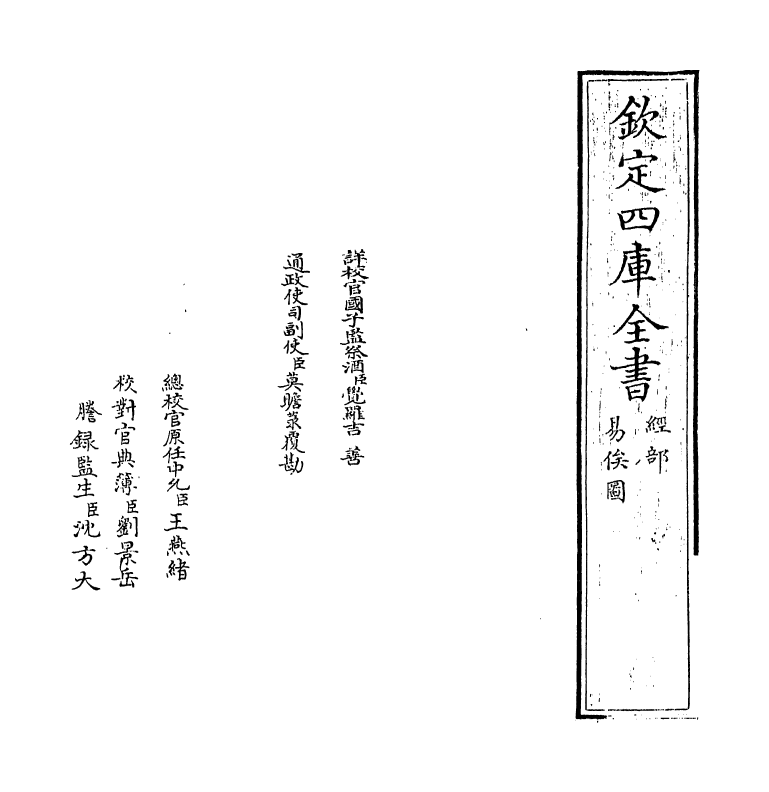 欽定四庫全書
經部
易俟圖
詳校官國子監祭酒臣覺羅吉善
通政使司副使臣莫瞻菉覆勘
總校官原任中允臣王燕緒
校對官典簿臣劉景岳
謄録監生臣沈方大